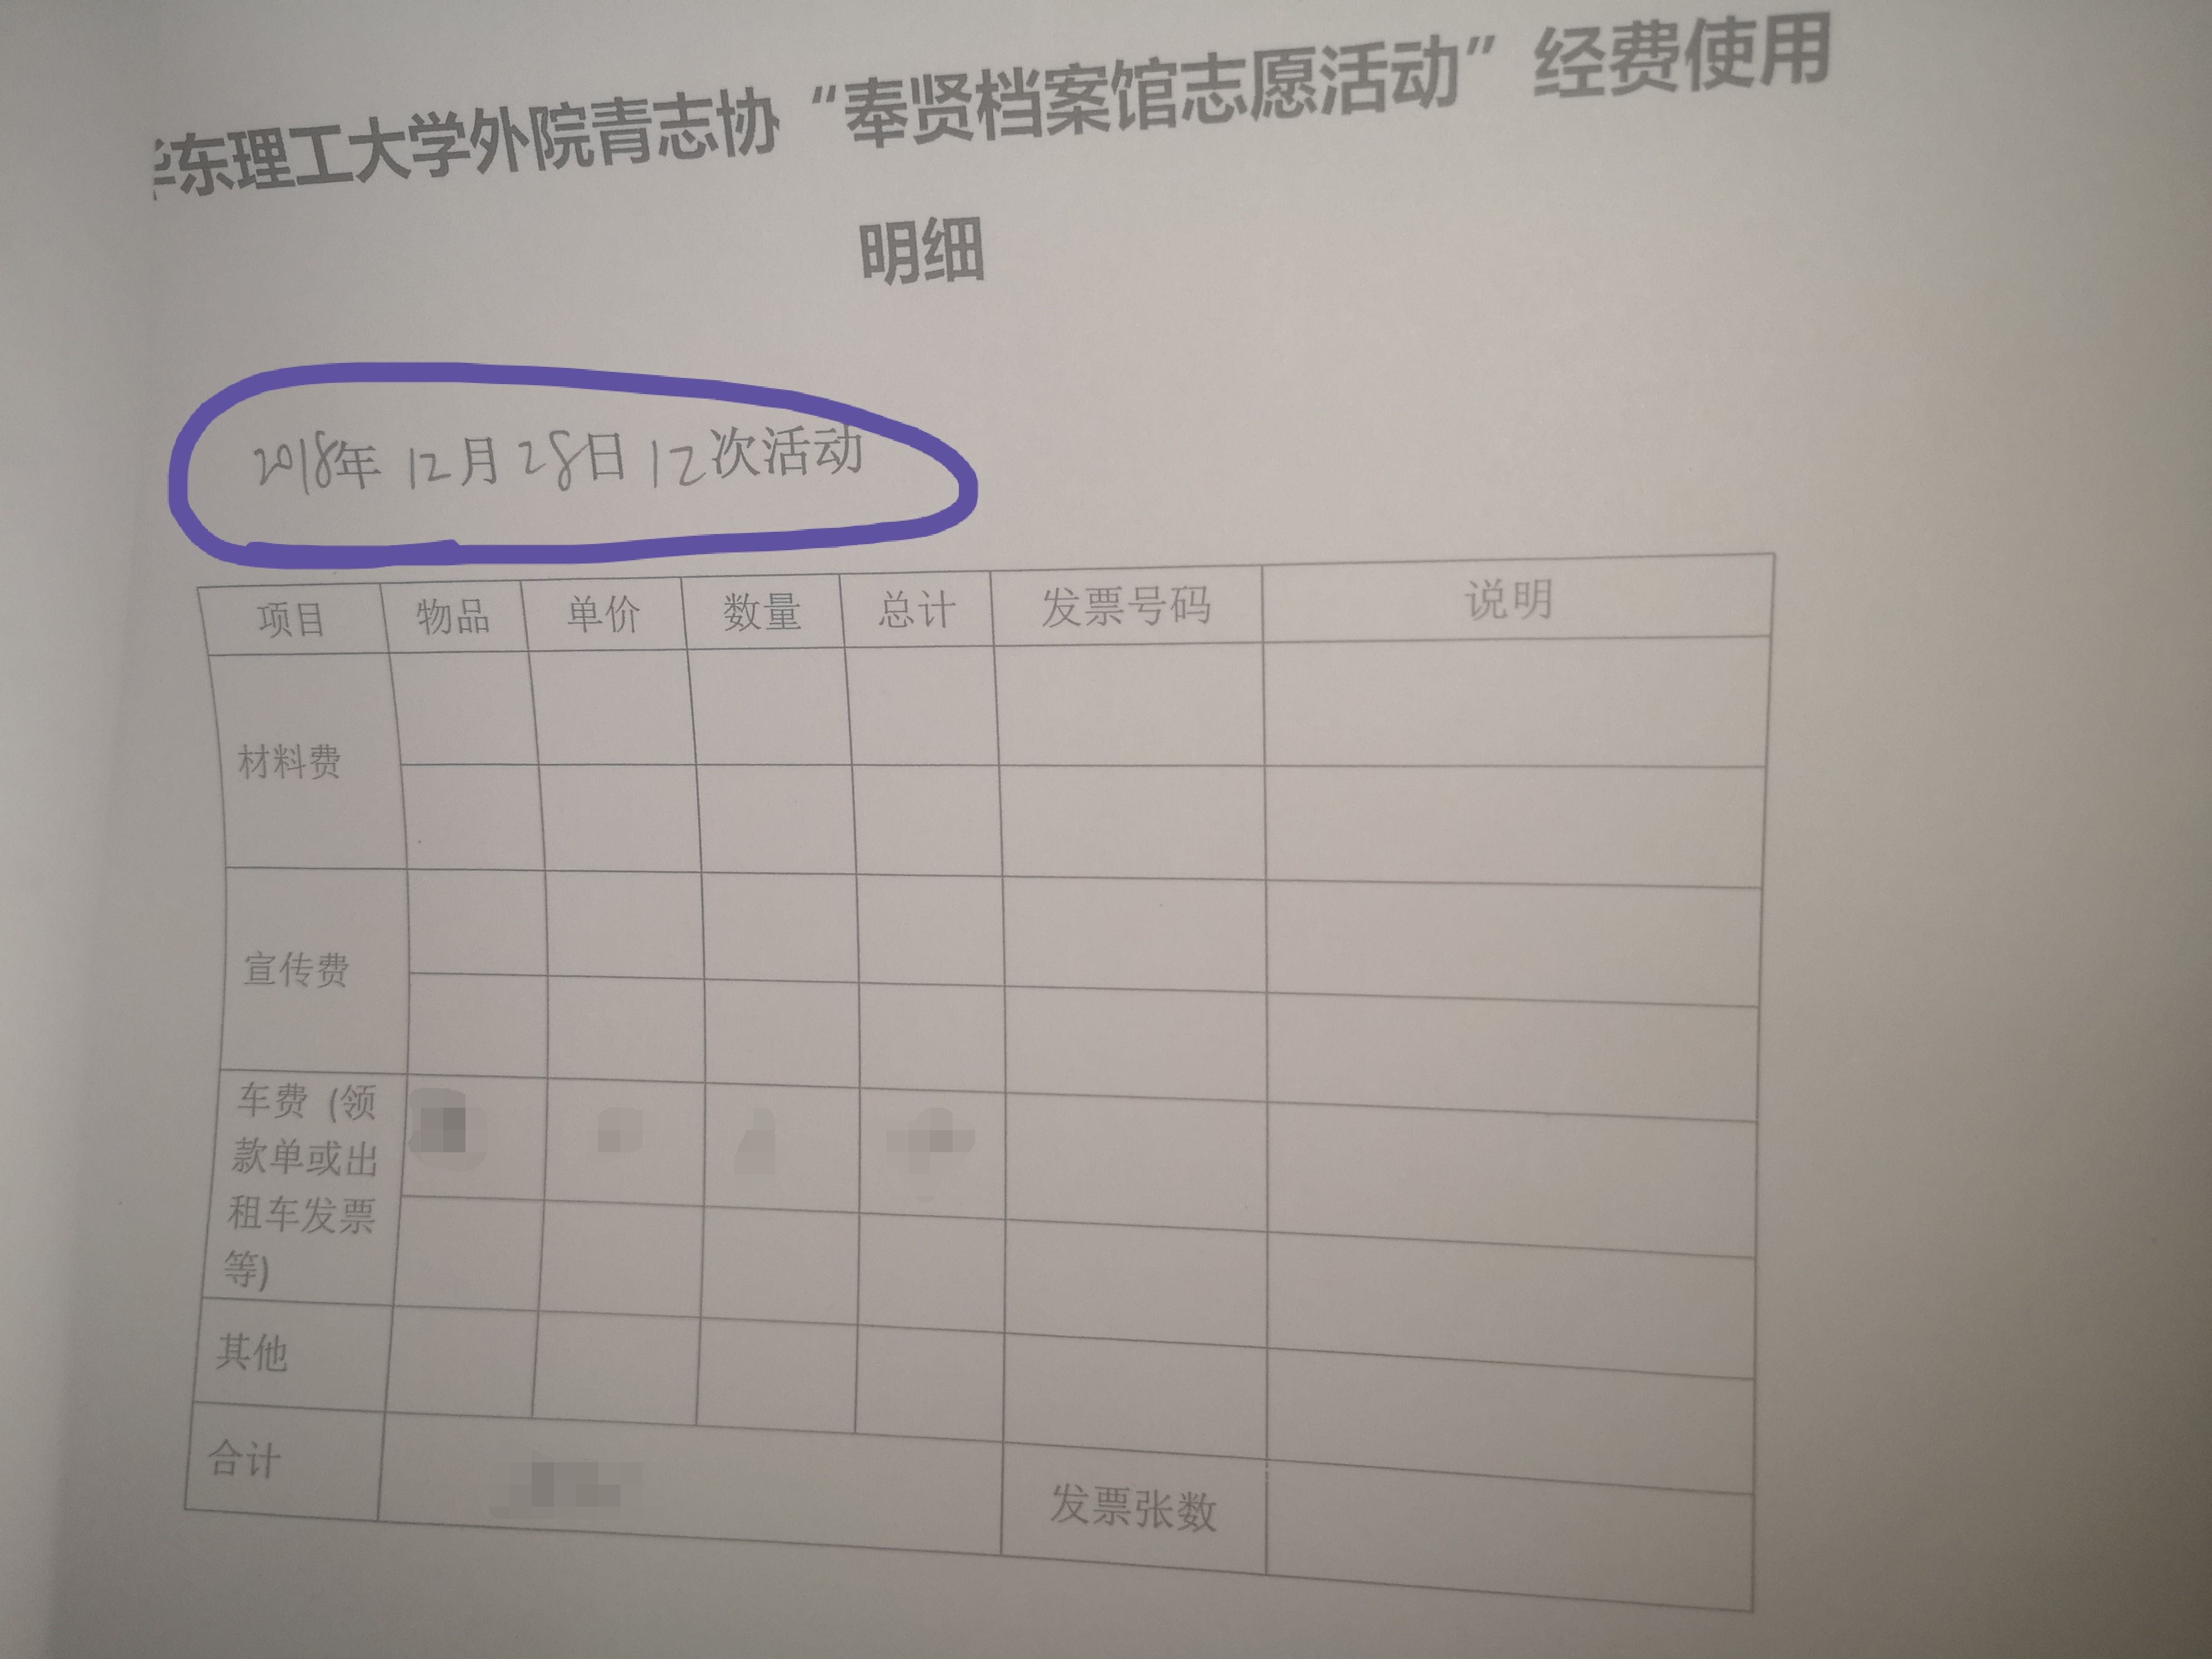 华东理工大学外院青志协“奉贤档案馆志愿活动”经费使用
明细
2018年 12月 28日 12次活动
项目 物品 单价 数量 总计 发票号码 说明
材料费
宣传费
车费（领
款单或出
租车发票
等)
其他
合计 发票张数